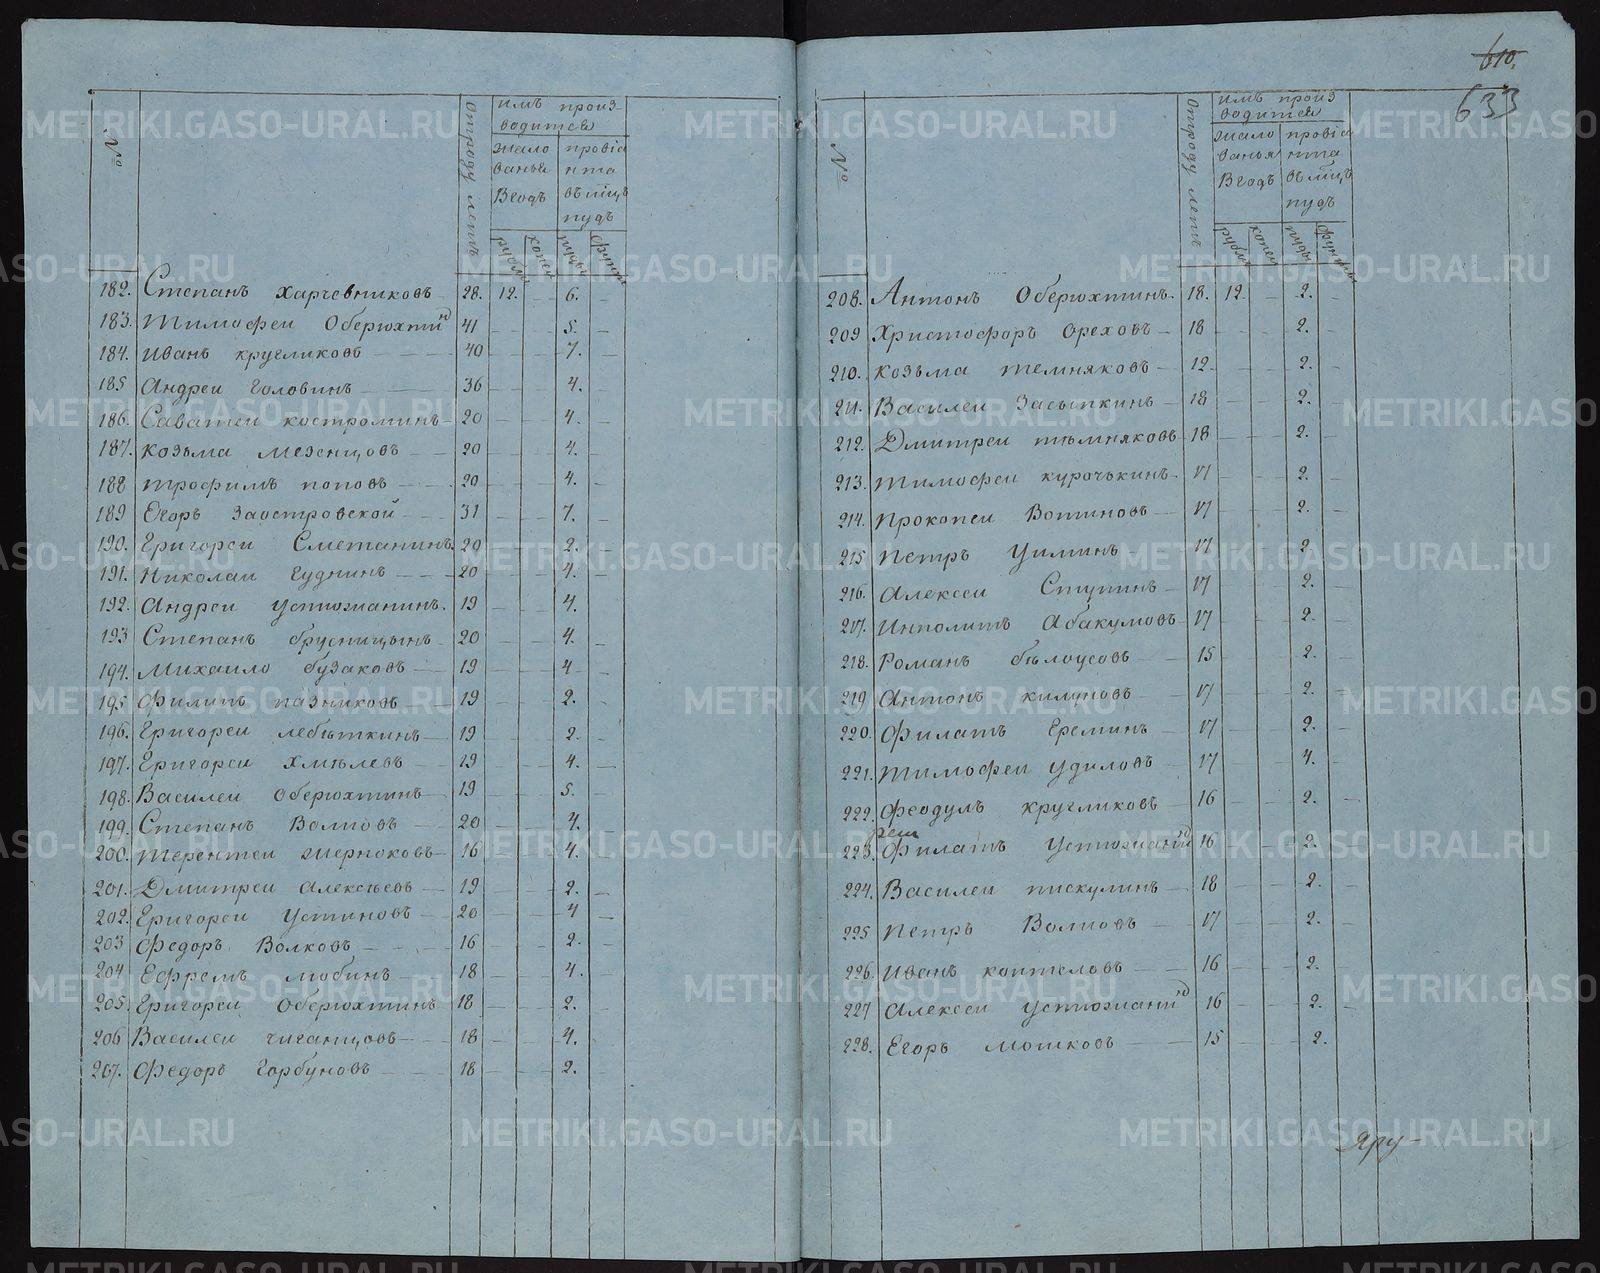 №
Отроду летъ
имъ произ-
водится
жало
ванья
Вгодъ
провіа
нта
въ мцъ
пудъ
рубли
копеи
пуды
фунты
182. Степанъ Харчевниковъ 28. 12. 6.
183. Тимофеи Оберюхтинъ 41 5.
184. Иванъ кругликовъ 40 7.
185 Андреи Головинъ 36 4.
186. Саватеи костроминъ 20 4.
187. Козьма мезенцовъ 20 4.
188 трофимъ поповъ 20 4.
189 Егоръ Заостровской 31 7.
190. Григореи Сметанинъ 20 2.
191. Николаи Гуднинъ 20 4.
192. Андреи устюжанинъ. 19 4.
193 Степанъ брусницынъ 20 4.
194. Михаило бузаковъ 19 4
195 Филипъ пазниковъ 19 2.
196. Григореи лебѣткинъ 19 2.
197. Григореи Хмѣлевъ 19 4.
198. Василеи Оберюхтинъ 19 5.
199. Степанъ Волповъ 20 4.
200. терентеи жерноковъ 16 4.
201. Дмитреи алексѣевъ 19 2.
202. Григореи Устиновъ 20 4
203 Федоръ Волковъ 16 2.
204 Ефремъ любинъ 18 4.
205. Григореи Оберюхтинъ 18 2.
206 Василеи чиганцовъ 18 4.
207. Федоръ Горбуновъ 18 2.
610.
633
№
Отроду летъ
имъ произ
водится
жало
ванья
Вгодъ
провіа
нта
въ мцъ
пудъ
рубли
копеи
пуды
фунты
208. Антонъ Оберюхтинъ. 18. 12 2.
209 Христофоръ Ореховъ 18 2.
210. козьма темняковъ 12. 2.
211. Василеи Засыпкинъ 18 2.
212. Дмитреи тѣмняковъ 18 2.
213. тимофеи курочькинъ 17 2.
214. Прокопеи Вотиновъ 17 2.
215 Петръ Уиминъ 17 2
216. Алексеи Ступинъ 17 2.
217. Иполитъ Абакумовъ 17 2.
218. Романъ бѣлоусовъ 15 2.
219 Антонъ килуновъ 17 2.
220. Филатъ Ереминъ 17 2.
221. Тимофеи удиловъ 17 4.
222. Феодулъ кругликовъ 16 2.
223. Филатъ Устюжанинъ 16 2.
224. Василеи пискулинъ 18 2.
225 Петръ Волповъ 17 2.
226. Иванъ коптеловъ 16 2.
227 Алексеи Устюжанинъ 16 2.
228. Егоръ мошковъ 15 2.